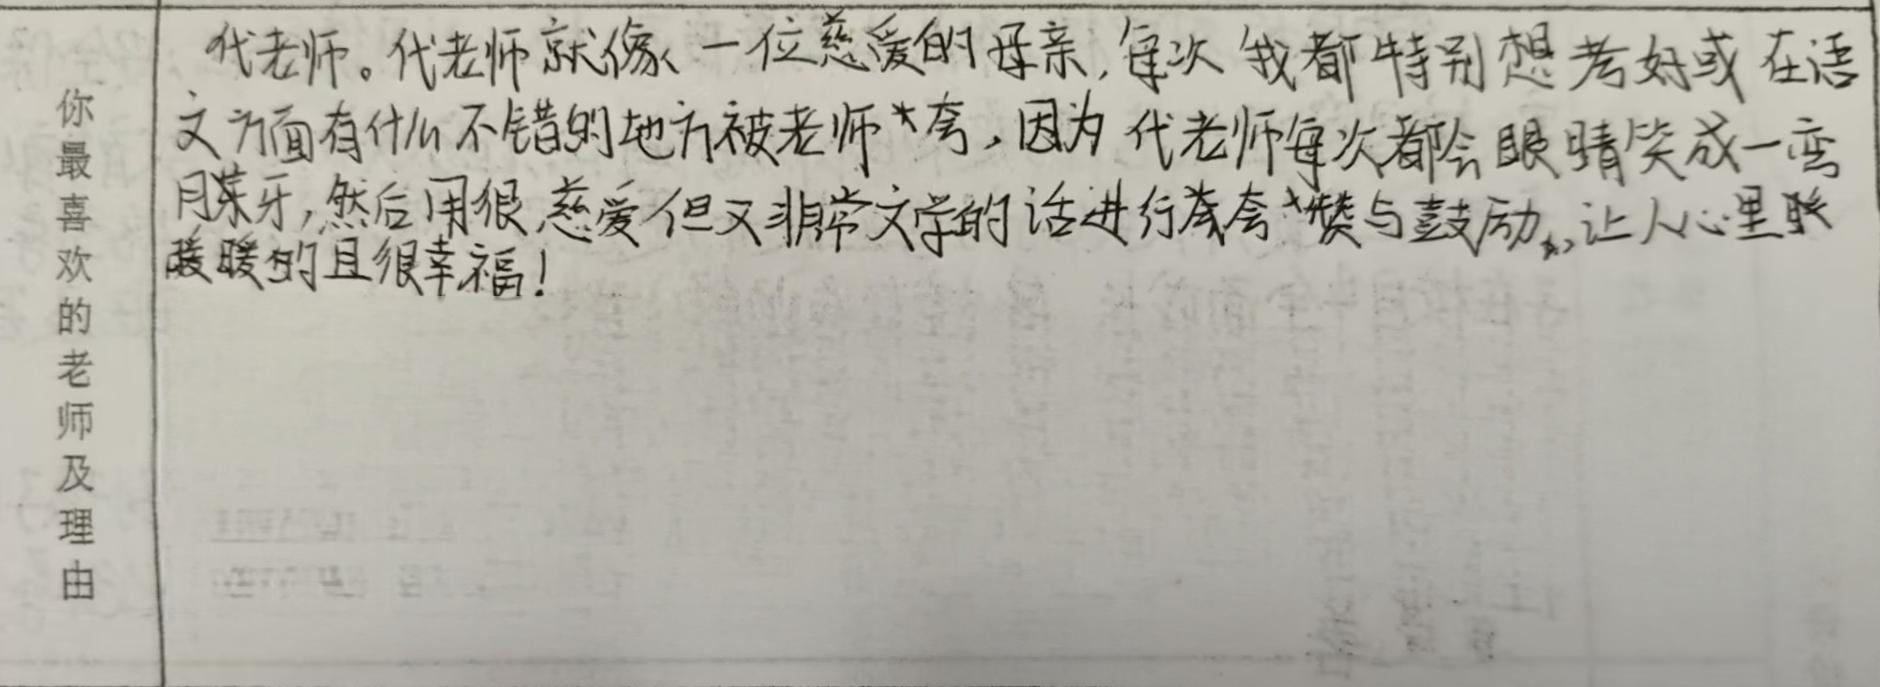 你最喜欢的老师及理由
代老师。代老师就像一位慈爱的母亲,每次我都特别想考好或在语
文方面有什么不错的地方被老师夸,因为代老师每次都会眼睛笑成一弯
月牙,然后用很慈爱但又非常文学的话进行夸赞与鼓励,让人心里
暖暖的且很幸福!